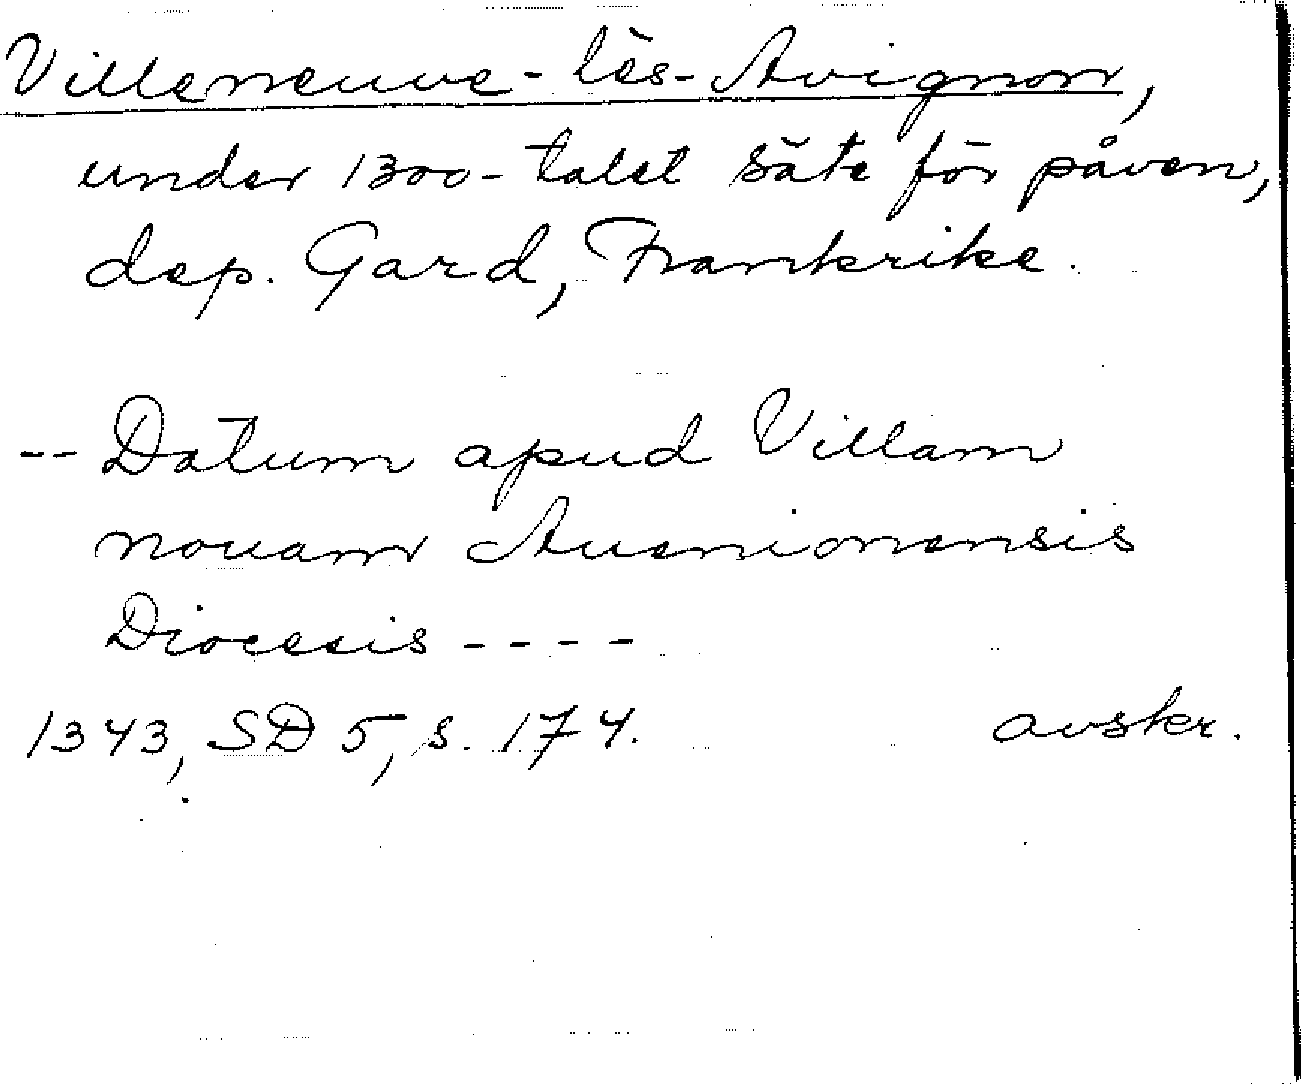 Villeneuve-lès-Avignon,
under 1300-talet säte för påven,
dep. Gard, Frankrike.
-- Datum apud Villam
nouam Auenionensis
Diocesis ----
1343, SD 5, s. 174. avskr.